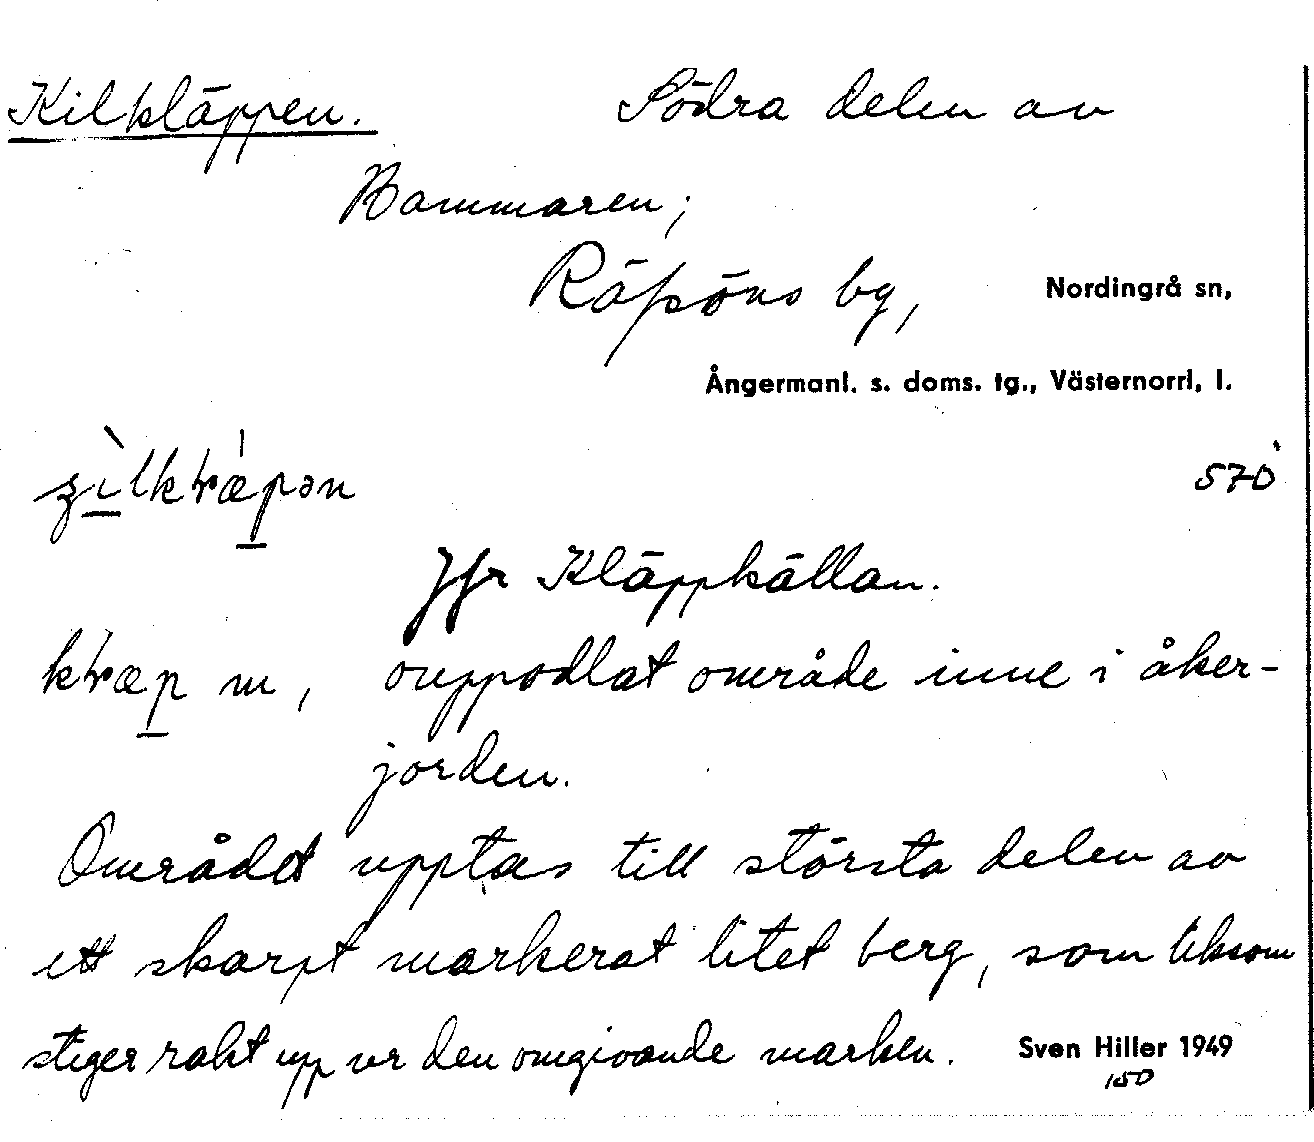 Kilkläppen. Södra delen av
Bammaren;
Räpöns by, Nordingrå sn,
Ångermanl. s. doms. tg., Västernorrl, l.
570
Jfr Kläppkällan.
m, ouppodlat område inne i åker-
jorden.
Området upptas till största delen av
ett skarpt markerat litet berg, som liksom
stiger rakt upp ur den omgivande marken. Sven Hiller 1949
150